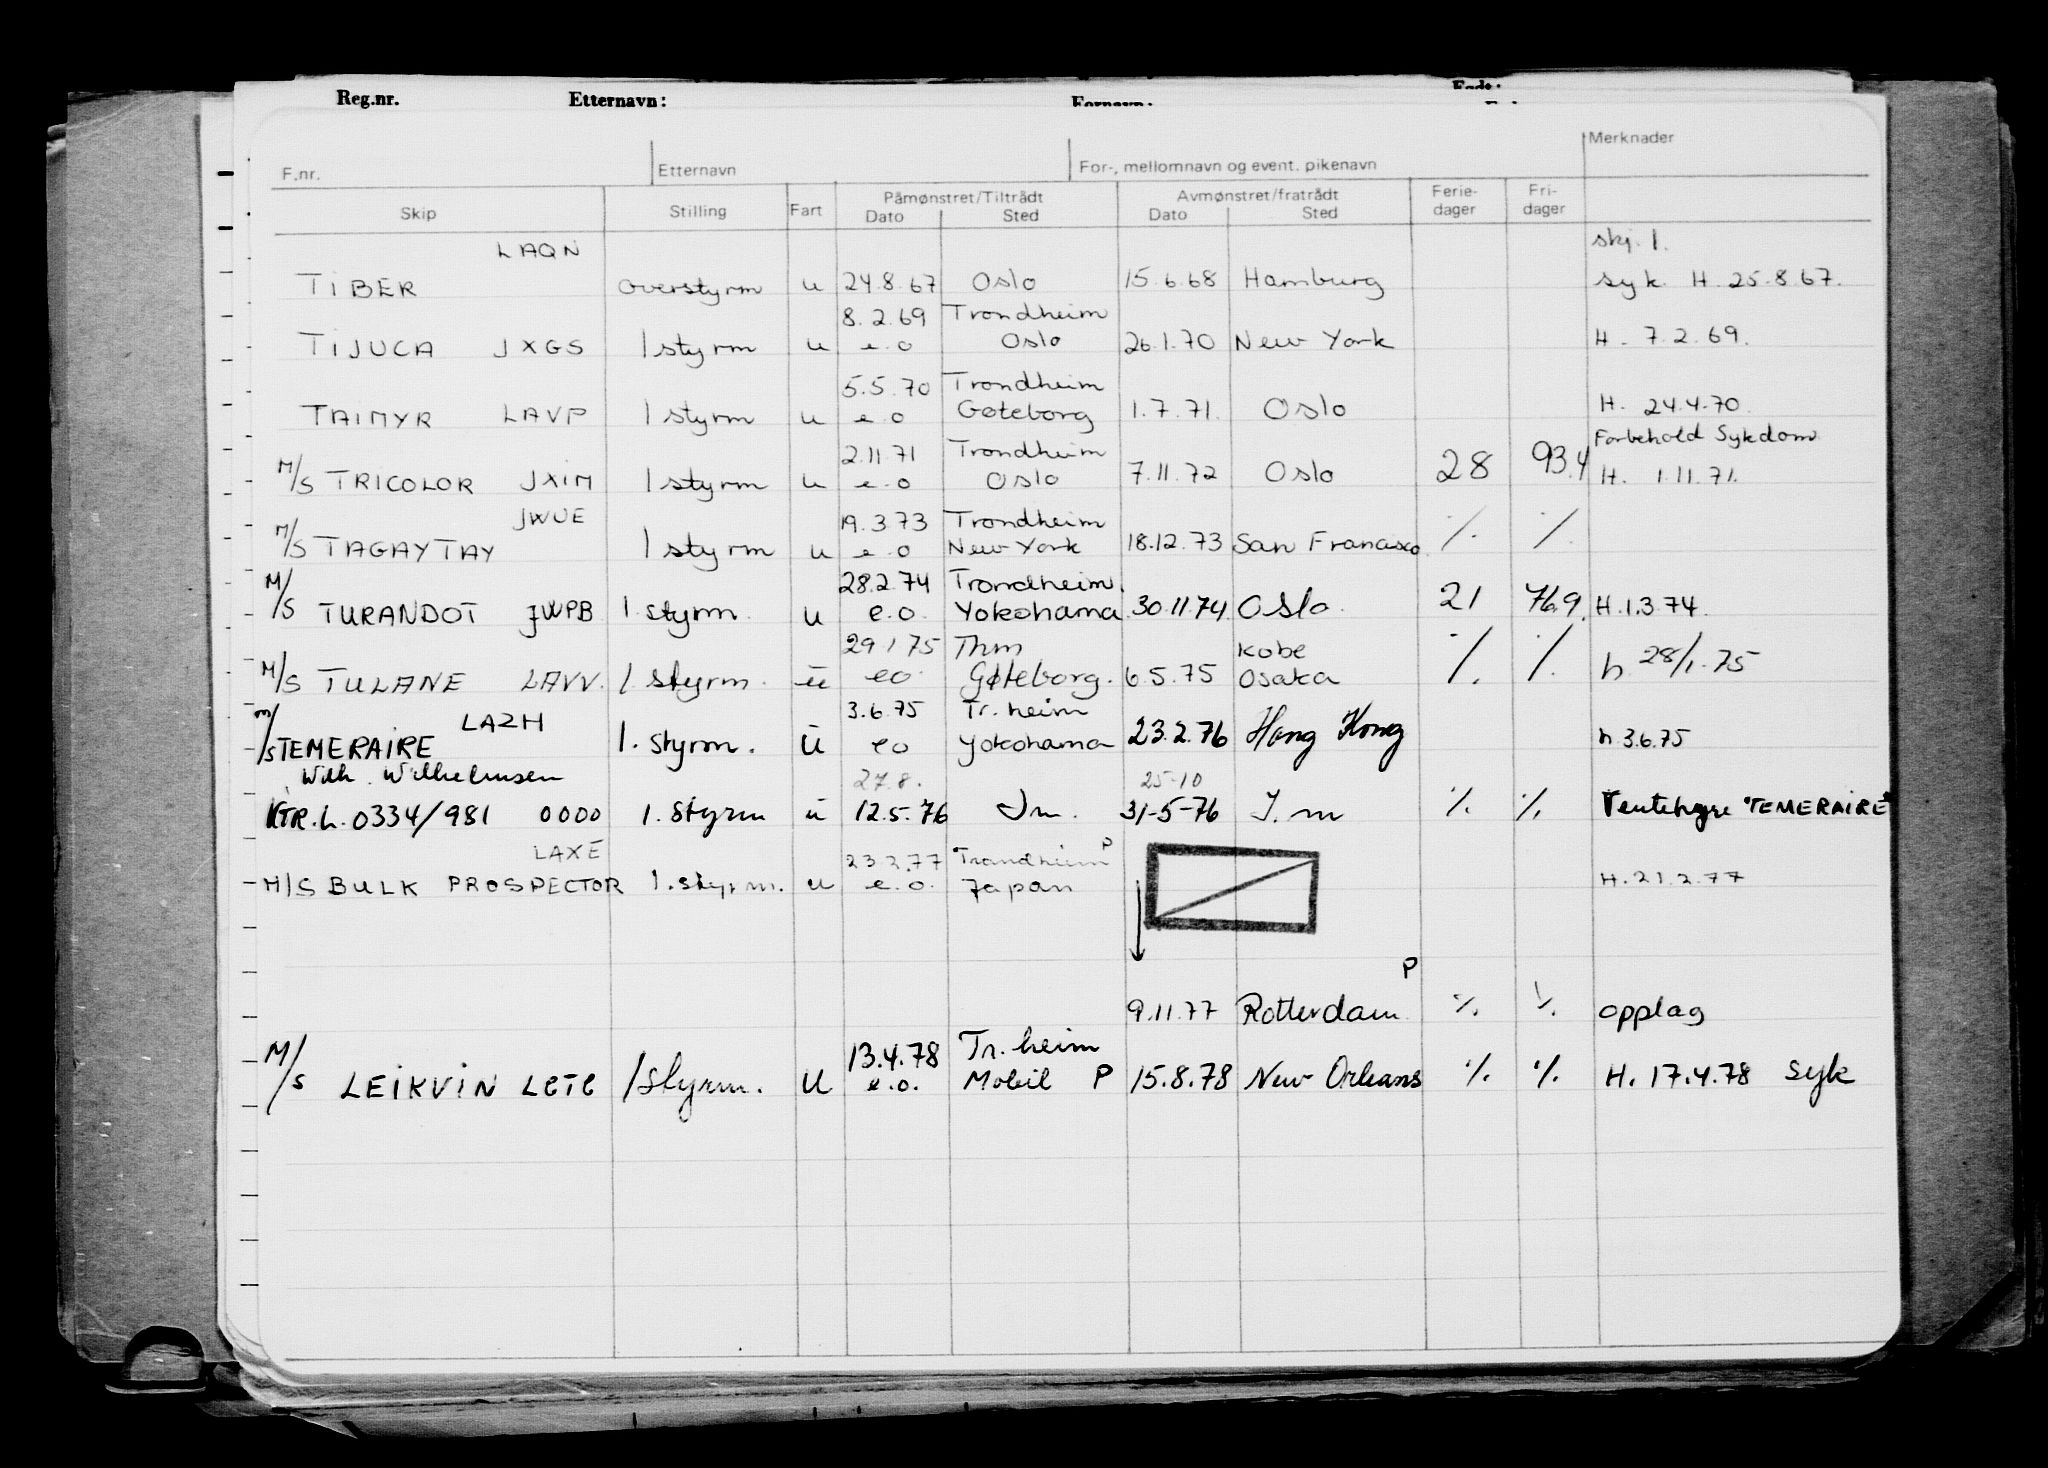 Reg.nr. Etternavn:
F.nr. Etternavn For-, mellomnavn og event. pikenavn Merknader
Skip Stilling Fart Påmønstret/Tiltrådt Avmønstret/fratrådt Ferie- Fri-
Dato Sted Dato Sted dager dager
LAQN skj. 1.
TIBER overstyrm u 24.8.67 Oslo 15.6.68 Hamburg syk H 25.8.67.
8.2.69 Trondheim
TIJUCA JXGS 1 styrm u e.o Oslo 26.1.70 New York H. 7.2.69.
5.5.70 Trondheim
TAIMYR LAVP 1 styrm u e.o Gøteborg 1.7.71. Oslo H. 24.4.70.
2.11.71 Trondheim Forbehold Sykdom
M/S TRICOLOR JXIM 1 styrm u e.o Oslo 7.11.72 Oslo 28 93.4 H. 1.11.71.
JWUE 19.3.73 Trondheim
M/S TAGAYTAY 1 styrm u e.o New York 18.12.73 San Francisco ·/. ·/.
28.2.74 Trondheim
M/S TURANDOT JWPB 1. styrm. u e.o. Yokohama 30.11.74 Oslo. 21 76.9. H.1.3.74.
29.1.75 Thm Kobe
M/S TULANE LAVV. 1. styrm. u eo. Gøteborg. 6.5.75 Osaka ·/. ·/. h 28/1.75
LAZH 3.6.75 Tr.heim
M/S TEMERAIRE 1. styrm. u eo Yokohama 23.2.76 Hong Kong h 3.6.75
Wilh. Wilhelmsen 27.8. 25-10
KTR.L.0334/981 0000 1. styrm u 12.5.76 J.m. 31-5-76 J.m ·/. ·/. Ventehyre "TEMERAIRE"
LAXE 23.2.77 Trondheim P
M/S BULK PROSPECTOR 1. styrm. u e.o. Japan H.21.2.77
P
9.11.77 Rotterdam ·/. ·/. opplag
13.4.78 Tr.heim
M/S LEIKVIN LETC 1 styrm. u e.o. Mobil P 15.8.78 New Orleans ·/. ·/. H. 17.4.78 Syk